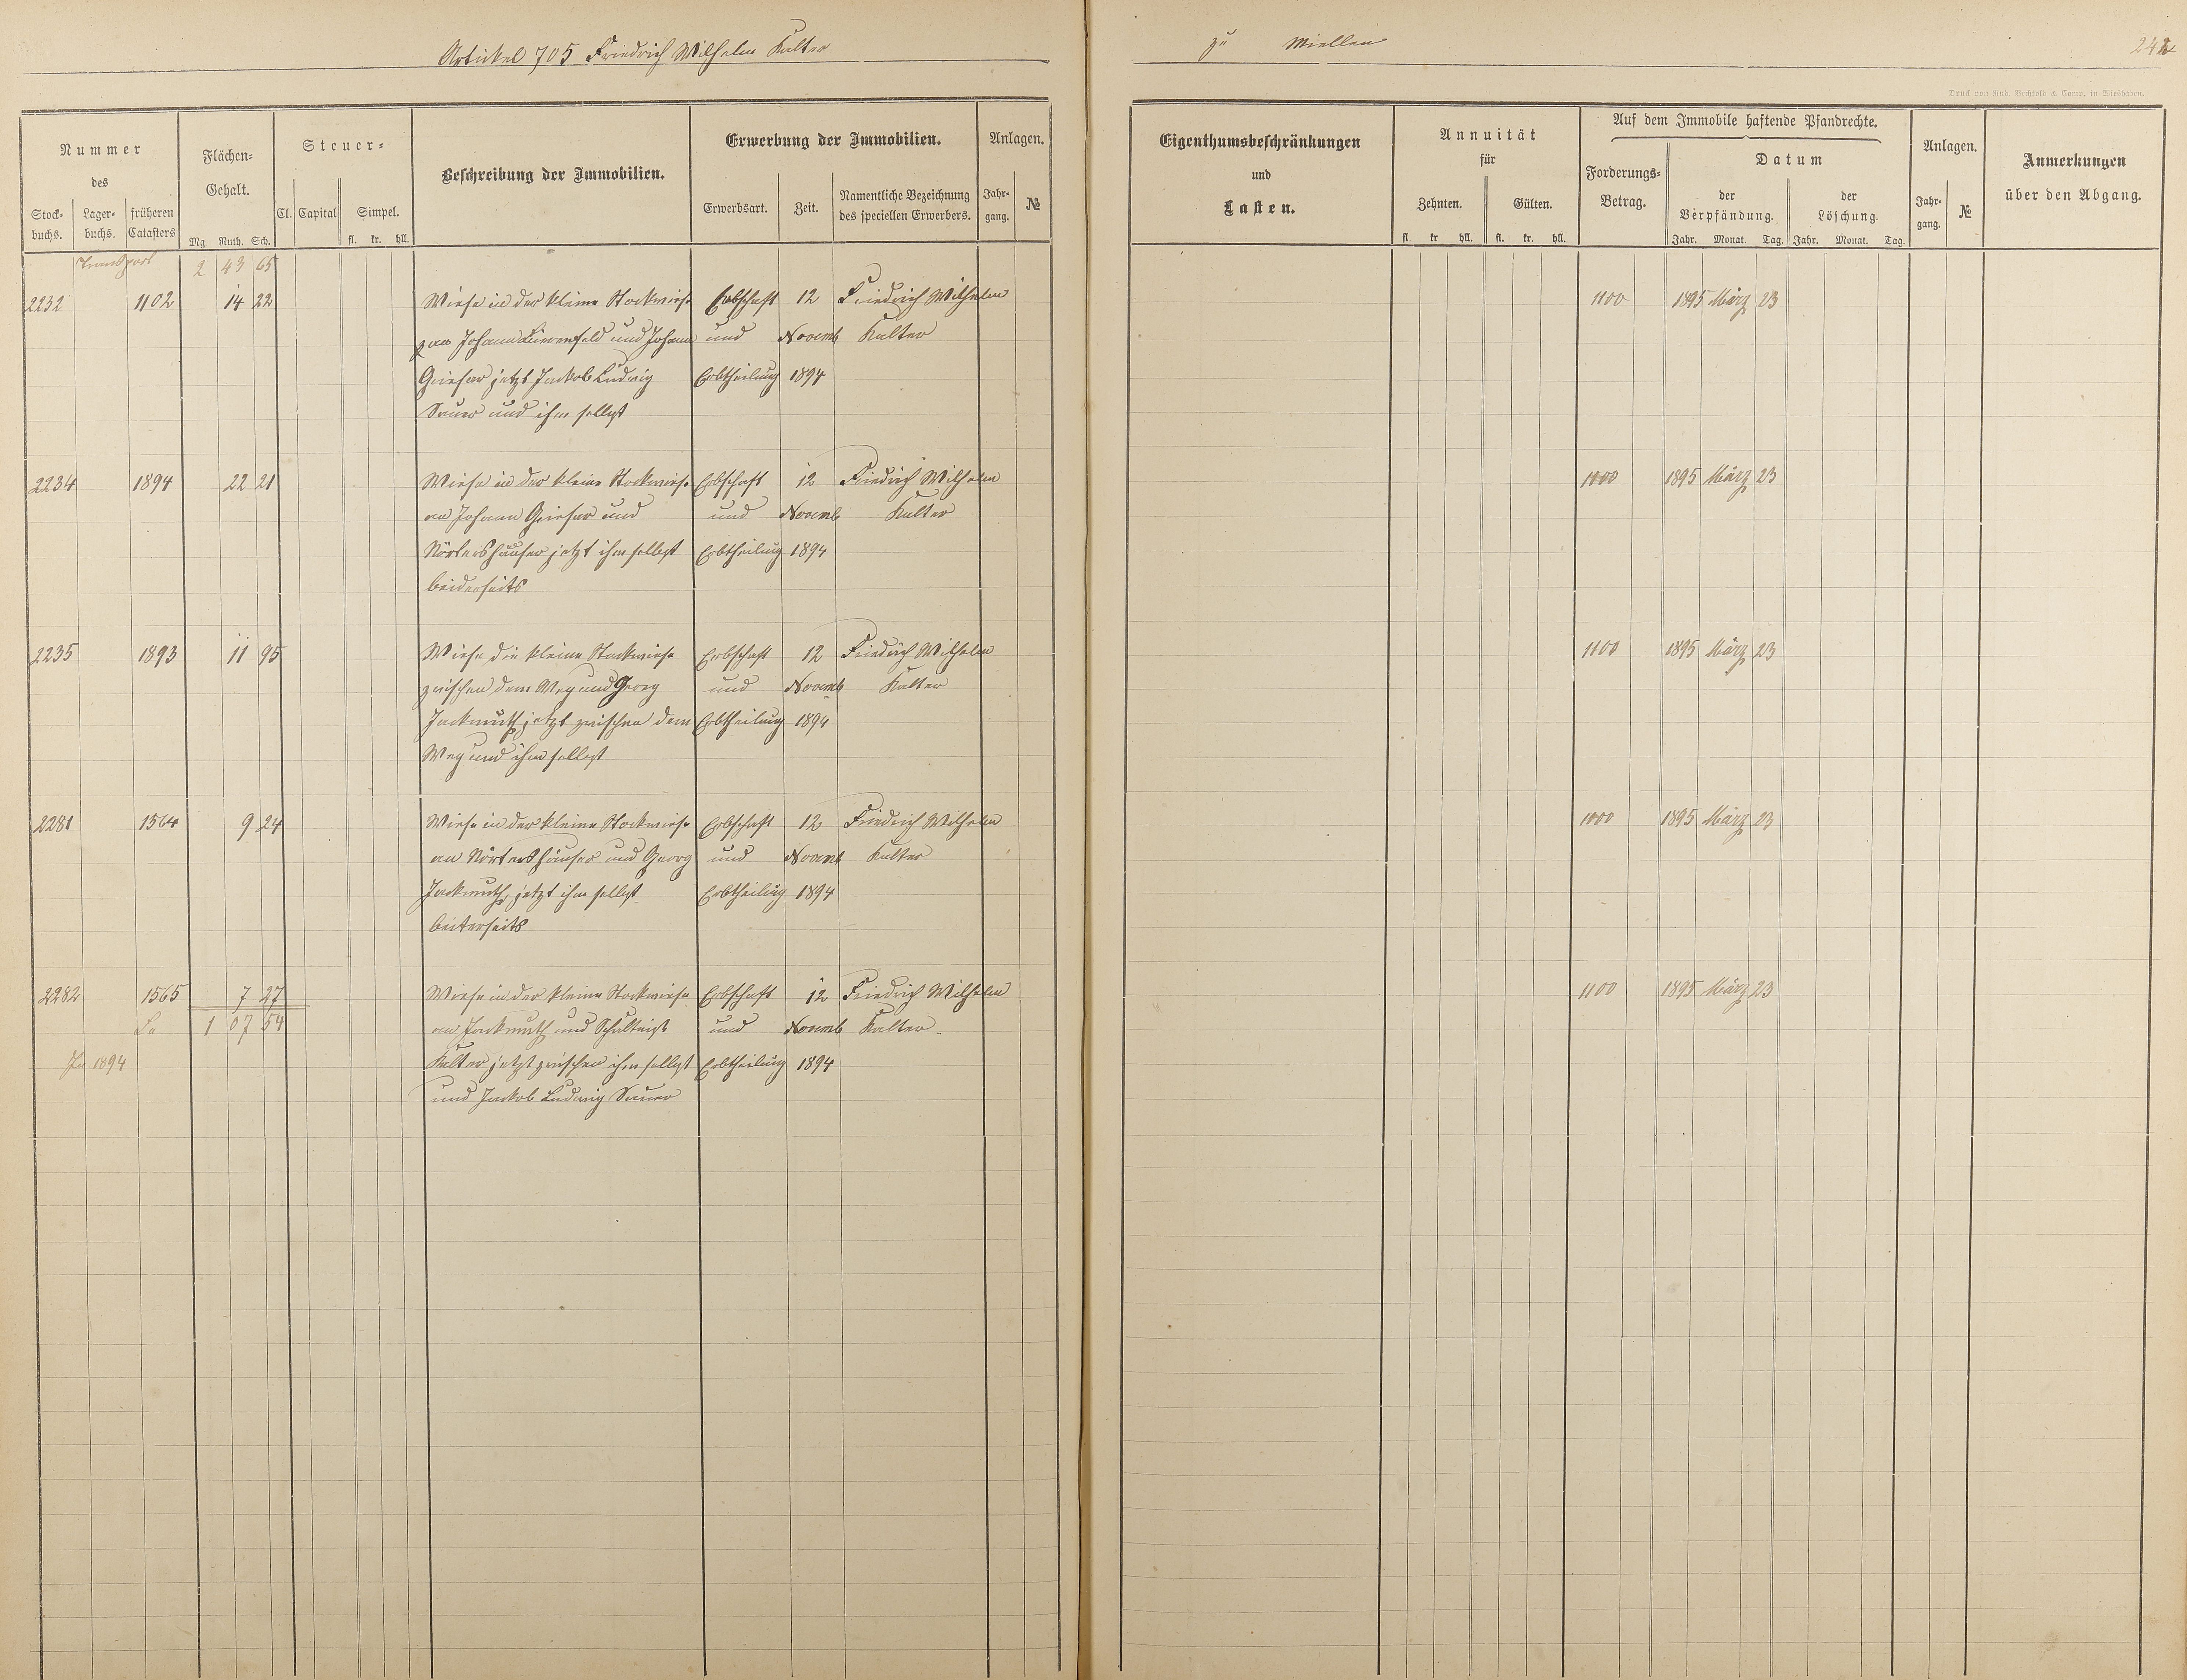 Artickel 705 Friedrich Wilhelm Kalter
zu Miellen
Druck von Rud. Bechtold & Comp. in Wiesbaden.
Nummer
des
Stock-
buchs.
Lager-
buchs.
früheren
Catasters
Flächen-
Gehalt.
Mg. Ruth. Sch.
Steuer-
Cl. Capital Simpel.
fl. kr. hll.
Beschreibung der Immobilien.
Erwerbung der Immobilien.
Erwerbsart.
Zeit.
Namentliche Bezeichnung
des speciellen Erwerbers.
Anlagen.
Jahr-
gang.
№
Eigenthumsbeschränkungen
und
Lasten.
Annuität
für
Zehnten. Gülten.
fl. kr hll. fl. kr. hll.
Auf dem Immobile haftende Pfandrechte.
Forderungs-
Betrag.
Datum
der
Verpfändung.
der
Löschung.
Jahr. Monat. Tag. Jahr. Monat. Tag.
Anlagen.
Jahr-
gang.
№
Anmerkungen
über den Abgang.
Transport 2 43 65
2232 1102 14 22 Wiese in der kleine Stockwiese Erbschaft 12 Friedrich Wilhelm 1100 1895 März 23
Johann und Johann und Novemb Kalter
Grieser jetzt Jackob Ludwig Erbtheilung 1894
Sauer und ihm selbst
2234 1894 22 21 Wiese in der kleine Stockwiese Erbschaft 12 Friedrich Wilhelm 1100 1895 März 23
an Johann Grieser und und Novemb Kalter
Nörtershäuser jetzt ihm selbst Erbtheilung 1894
beiderseits
2235 1893 11 95 Wiese die kleine Stockwiese Erbschaft 12 Friedrich Wilhelm 1100 1895 März 23
zwischen dem Weg und Georg und Novemb Kalter
Jackmuth jetzt zwischen dem Erbtheilung 1894
Weg und ihm selbst
2281 1564 9 24 Wiese in der kleine Stockwiese Erbschaft 12 Friedrich Wilhelm 1100 1895 März 23
an Nörtershäuser und Georg und Novemb Kalter
Jackmuth, jetzt ihm selbst Erbtheilung 1894
beiterseits
2282 1565 7 27 Wiese in der kleine Stockwiese Erbschaft 12 Friedrich Wilhelm 1100 1895 März 23
Sa 1 07 54 an Jackmuth und Schultheiß und Novemb Kalter
1894 Kalter jetzt zwischen ihm selbst Erbtheilung 1894
und Jackob Ludwig Sauer